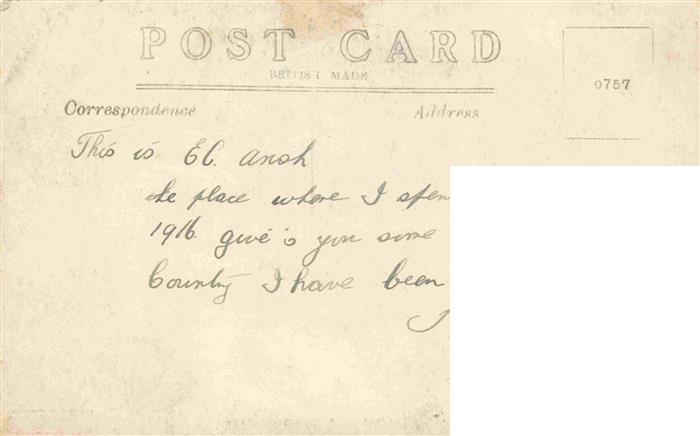 POST CARD
BRITISH MADE
0757
Correspondence
Address
This is El. arish
the place where I spen
1916 give's you some
Country I have been